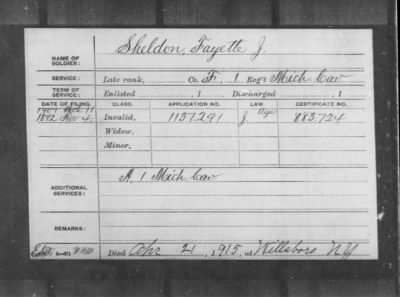 NAME OF SOLDIER: Sheldon, Fayette J.
SERVICE: Late rank, Co. F, 1 Reg't Mich. Cav
TERM OF SERVICE: Enlisted , 1 Discharged , 1
DATE OF FILING. CLASS. APPLICATION NO. LAW. CERTIFICATE NO.
1907 Mch 11
1892 Nov 4. Invalid, 1137.291 J. Age 883.724
Widow,
Minor,
ADDITIONAL SERVICES: A, 1 Mich Cav
REMARKS:
Died Apr 21, 1915, at Willsboro NY